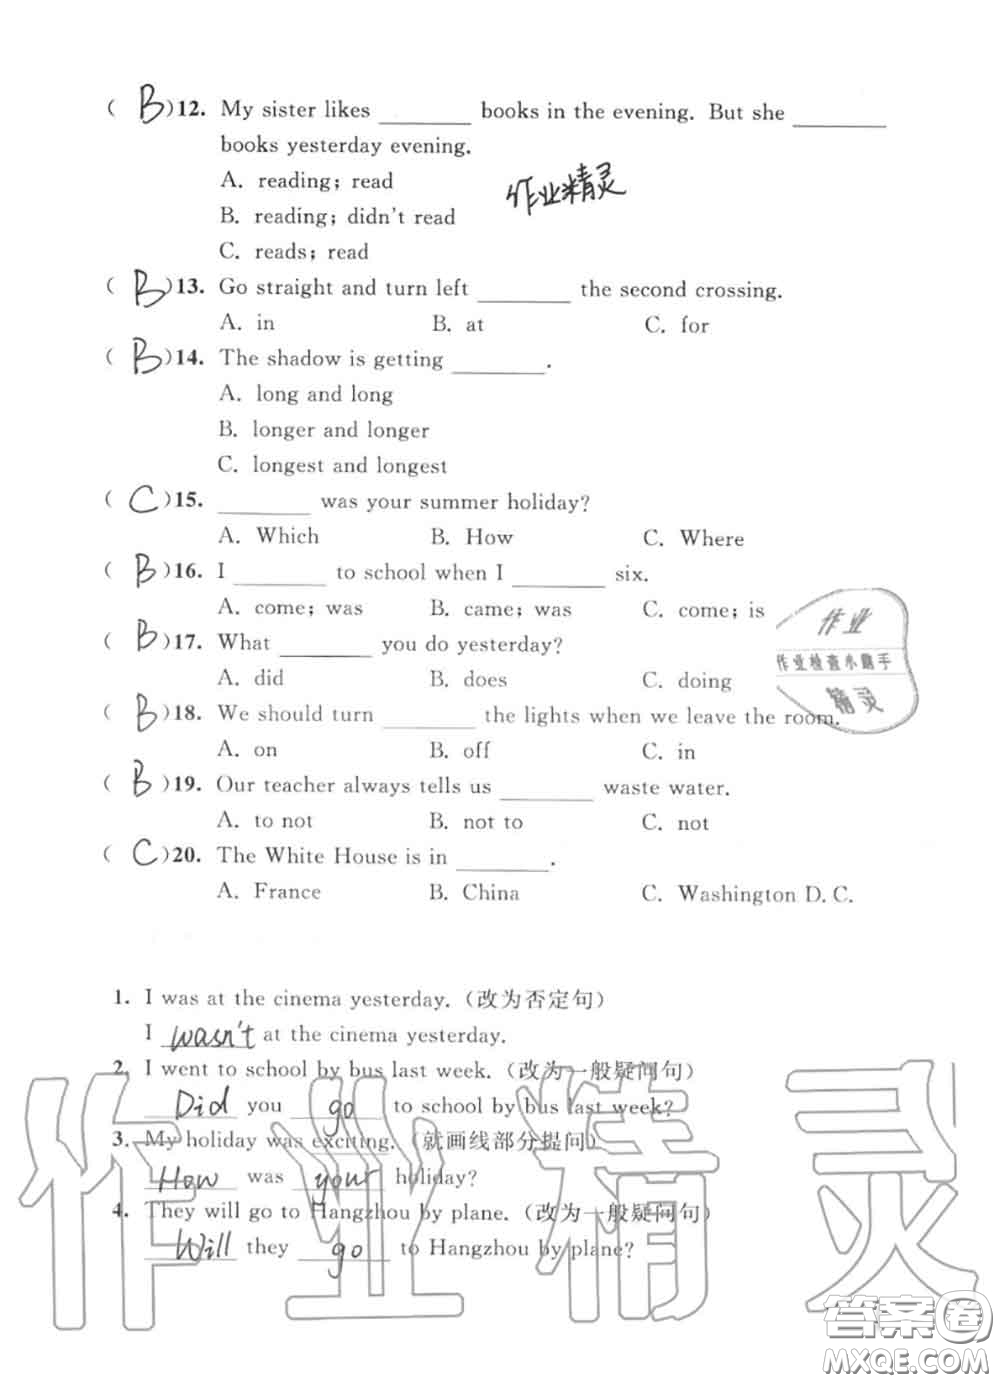 ( B )12. My sister likes ________ books in the evening. But she ________
books yesterday evening.
A. reading; read
作业精灵
B. reading; didn't read
C. reads; read
( B )13. Go straight and turn left ________ the second crossing.
A. in B. at C. for
( B )14. The shadow is getting ________.
A. long and long
B. longer and longer
C. longest and longest
( C )15. ________ was your summer holiday?
A. Which B. How C. Where
( B )16. I ________ to school when I ________ six.
A. come; was B. came; was C. come; is
作业
( B )17. What ________ you do yesterday?
作业检查小助手
A. did B. does C. doing
精灵
( B )18. We should turn ________ the lights when we leave the room.
A. on B. off C. in
( B )19. Our teacher always tells us ________ waste water.
A. to not B. not to C. not
( C )20. The White House is in ________.
A. France B. China C. Washington D. C.
1. I was at the cinema yesterday. (改为否定句)
I wasn't at the cinema yesterday.
2. I went to school by bus last week. (改为一般疑问句)
Did you go to school by bus last week?
3. My holiday was exciting. (就画线部分提问)
How was your holiday?
4. They will go to Hangzhou by plane. (改为一般疑问句)
Will they go to Hangzhou by plane?
作业精灵
答案圈
MXQE.COM